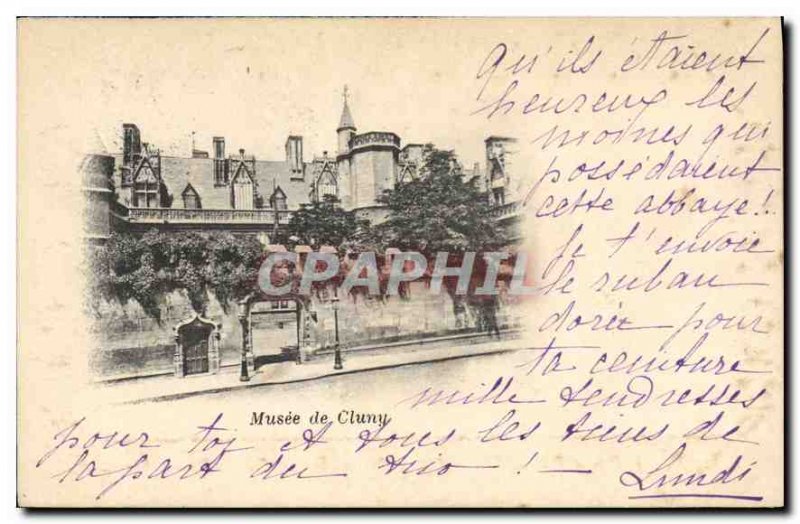 Qu'ils étaient
heureux les
moines qui
possédaient
cette abbaye !.
Je t'envoie
le ruban
dorée pour
ta ceinture
mille tendresses
pour toi & tous les tiens de
la part du trio ! —
Lundi
CPAPHIL.COM
Musée de Cluny